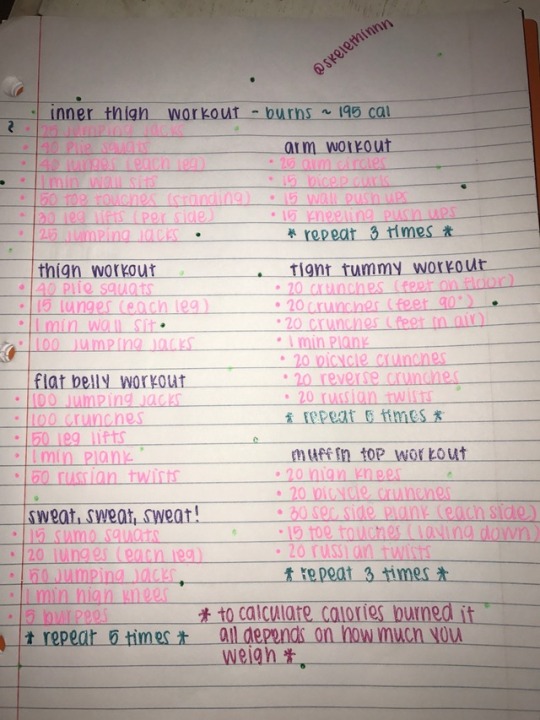 @skelethinnn
inner thigh workout - burns ~ 195 cal
25 jumping jacks
40 plie squats
40 lunges (each leg)
1 min wall sits
50 toe touches (standing)
30 leg lifts (per side)
25 jumping jacks
arm workout
25 arm circles
15 bicep curls
15 wall push ups
15 kneeling push ups
* repeat 3 times *
thigh workout
40 plie squats
15 lunges (each leg)
1 min wall sit
100 jumping jacks
tight tummy workout
20 crunches (feet on floor)
20 crunches (feet 90°)
20 crunches (feet in air)
1 min plank
20 bicycle crunches
20 reverse crunches
20 russian twists
* repeat 5 times *
flat belly workout
100 jumping jacks
100 crunches
50 leg lifts
1 min plank
50 russian twists
muffin top workout
20 high knees
20 bicycle crunches
30 sec side plank (each side)
15 toe touches (laying down)
20 russian twists
* repeat 3 times *
sweat, sweat, sweat!
15 sumo squats
20 lunges (each leg)
50 jumping jacks
1 min high knees
5 burpees
* repeat 5 times *
* to calculate calories burned it
all depends on how much you
weigh *